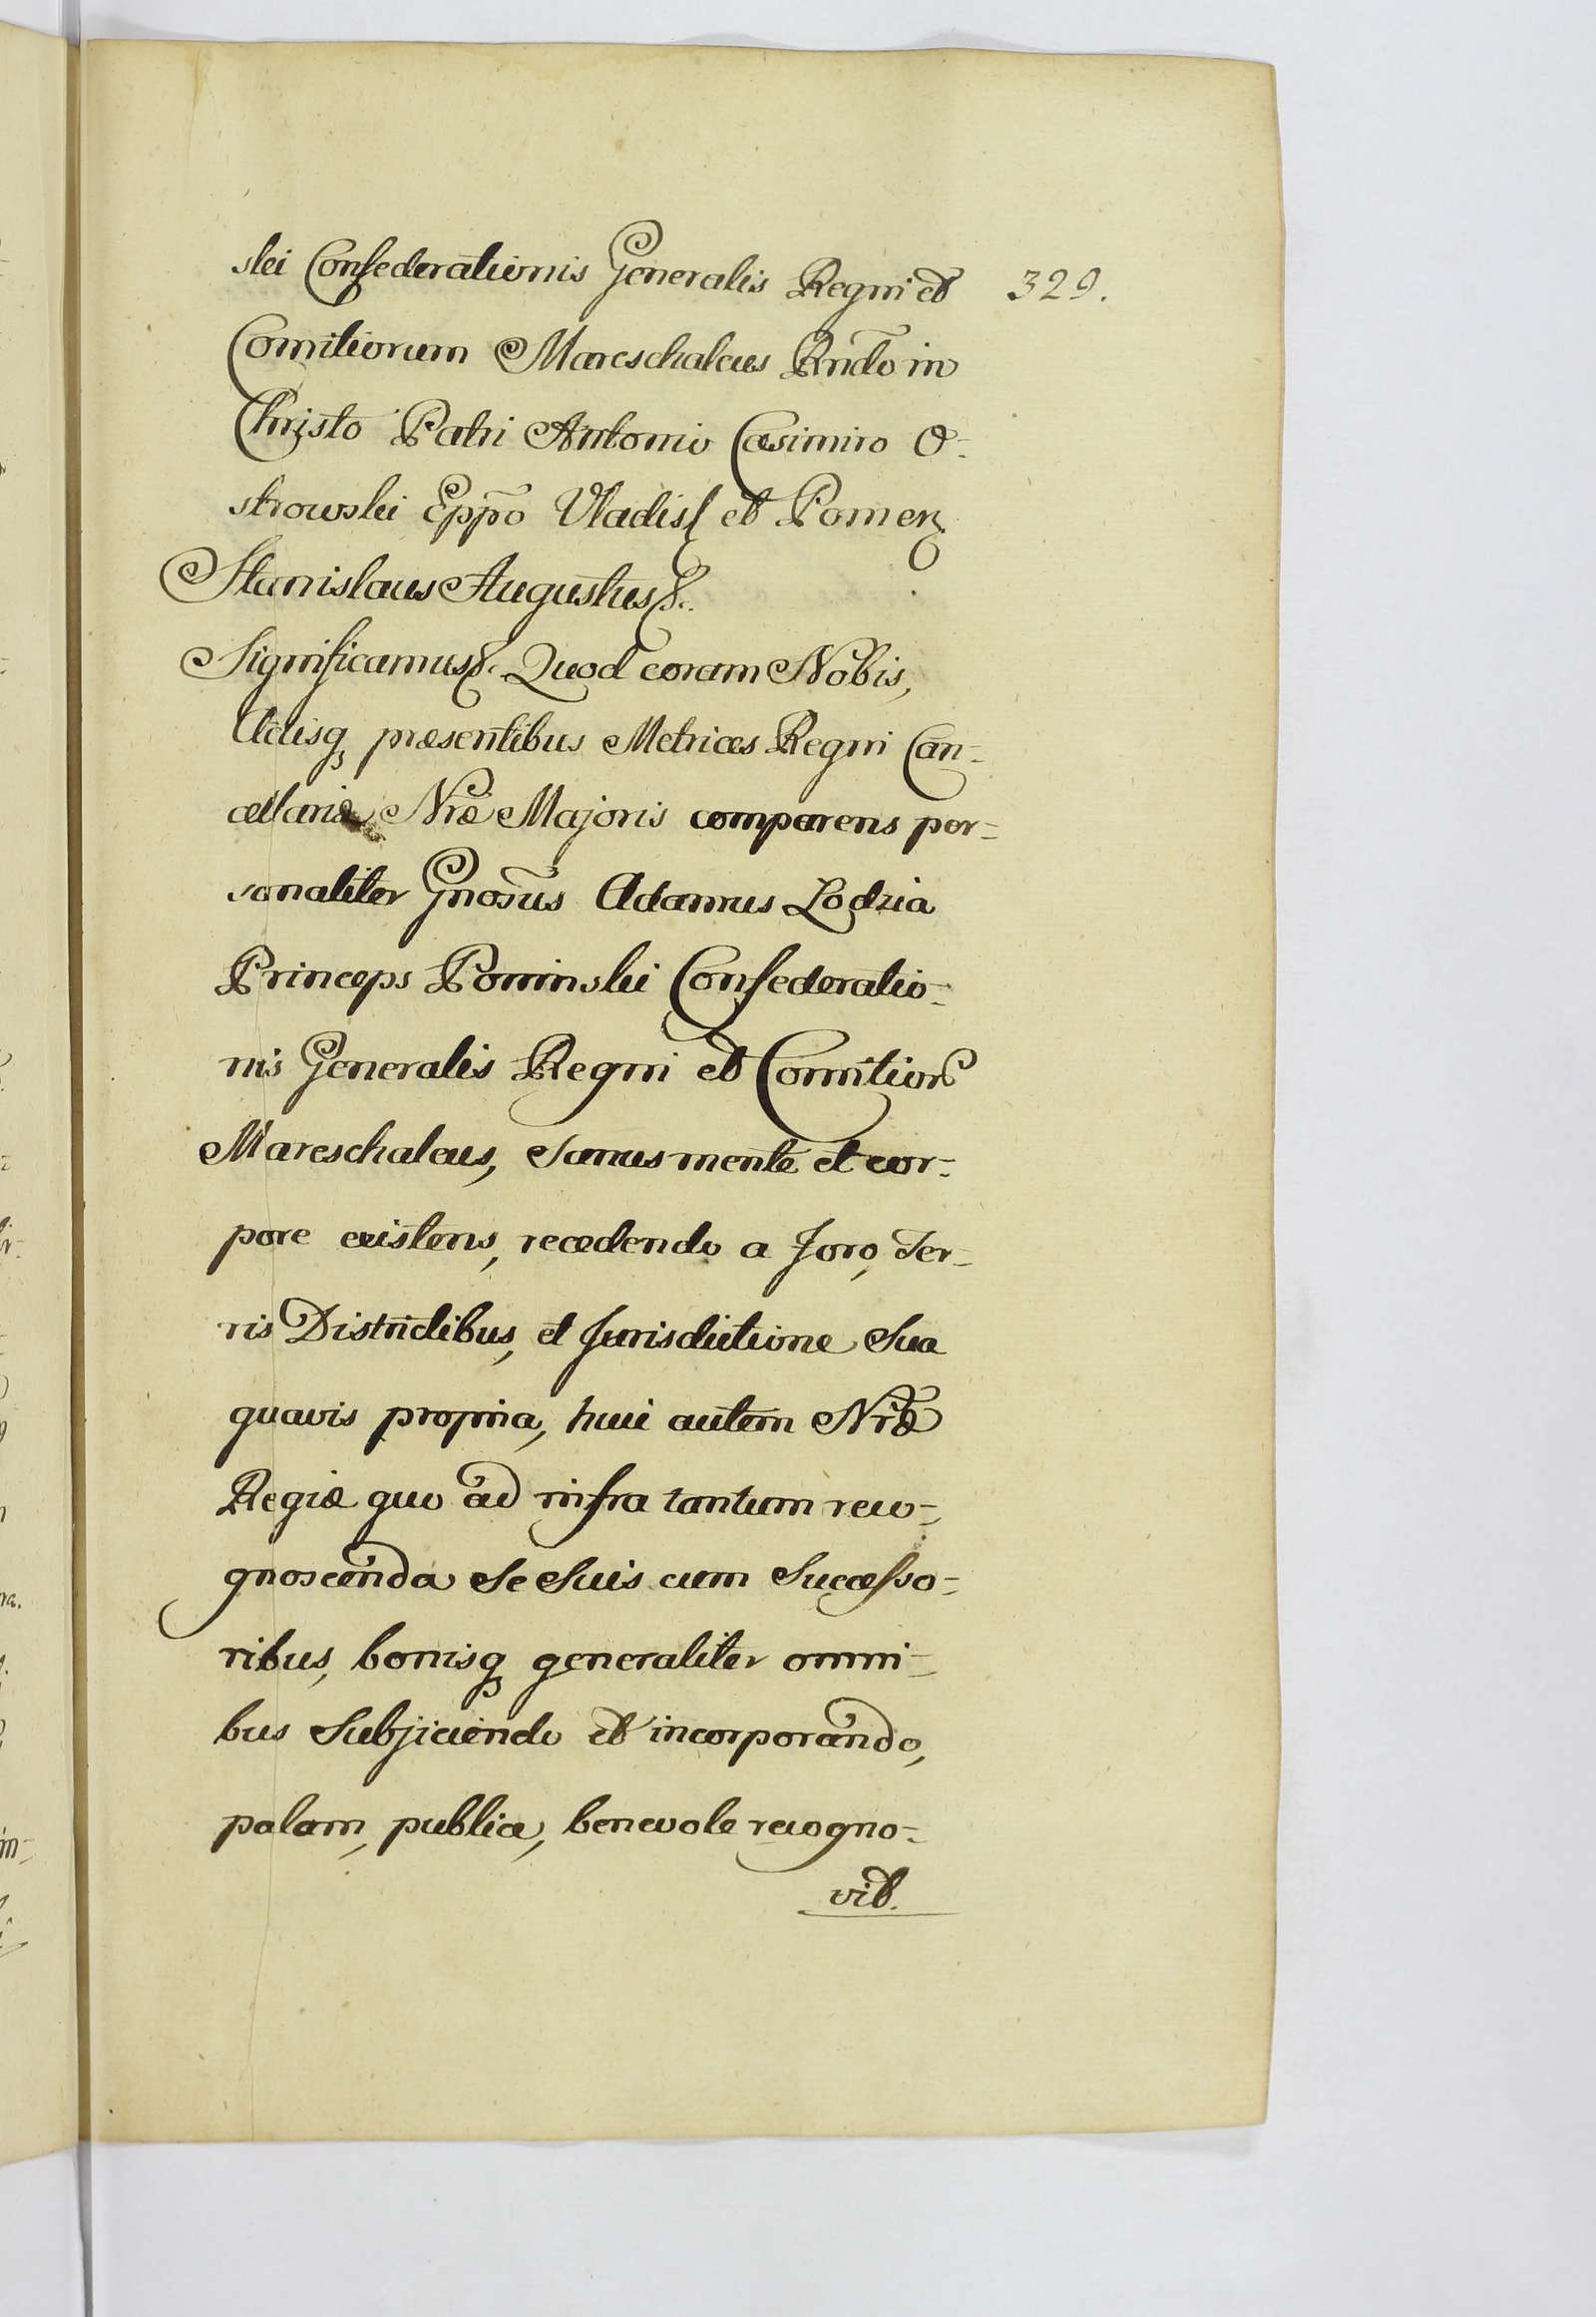 ski Confederationis Generalis Regni et 329.
Comitiorum Mareschalcus Rndo in
Christo Patri Antonio Casimiro O-
strowski Eppo Vladisl et Pomer
Stanislaus Augustus &.
Significamus &. Quod coram Nobis,
Actisq presentibus Metrices Regni Can-
cellariæ Nræ Majoris comparens per-
sonaliter Gnosus Adamus Lodzia
Princeps Poninski Confederatio-
nis Generalis Regni et Comitior
Mareschalcus, Sanus mente et cor-
pore existens, recedendo a Foro, Ter-
ris Districtibus, et Jurisdictione Sua
quavis propria, huic autem Nræ
Regiæ quo ad infra tantum reco-
gnoscenda Se Suis cum Successo-
ribus, bonisq generaliter omni-
bus Subjiciendo et incorporando,
palam, publice, benevole recogno-
vit.